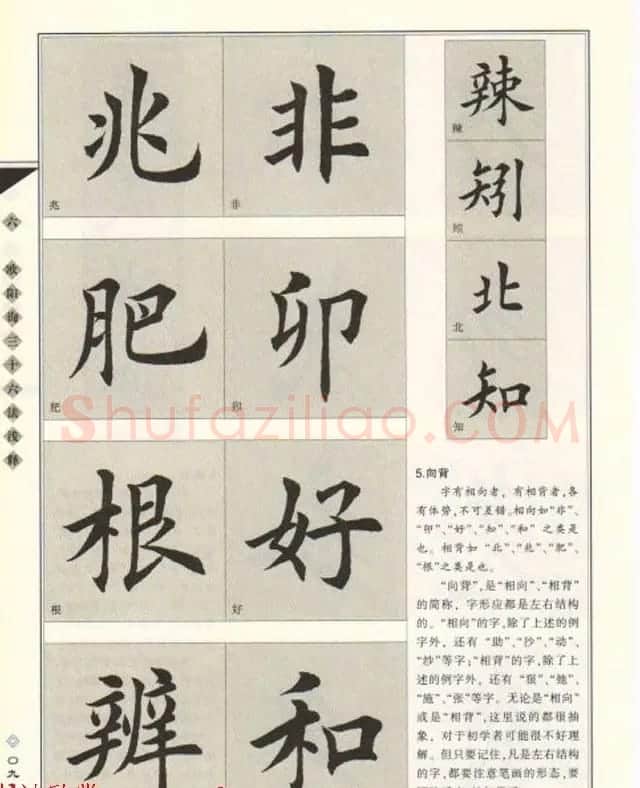 兆 非
兆 非
肥 卯
肥 卯
根 好
根 好
辨 和
辣
辣
矧
矧
北
北
知
知
六 欧阳询三十六法浅释
5.向背
字有相向者，有相背者,各
有体势,不可差错。相向如“非”、
“卯”、“好”、“知”、“和” 之类是
也。相背如 “北”、“兆”、“肥”、
“根”之类是也。
“向背”,是“相向”、“相背”
的简称，字形应都是左右结构
的。“相向”的字,除了上述的例
字外，还有 “助”、“抄”、“动”、
“纱”等字；“相背”的字,除了上
述的例字外，还有 “狠”、“她”、
“施”、“张”等字。无论是“相向”
或是“相背”,这里说的都很抽
象，对于初学者可能很不好理
解。但只要记住,凡是左右结构
的字,都要注意笔画的形态,要
◇〇九
Shufaziliao.COM